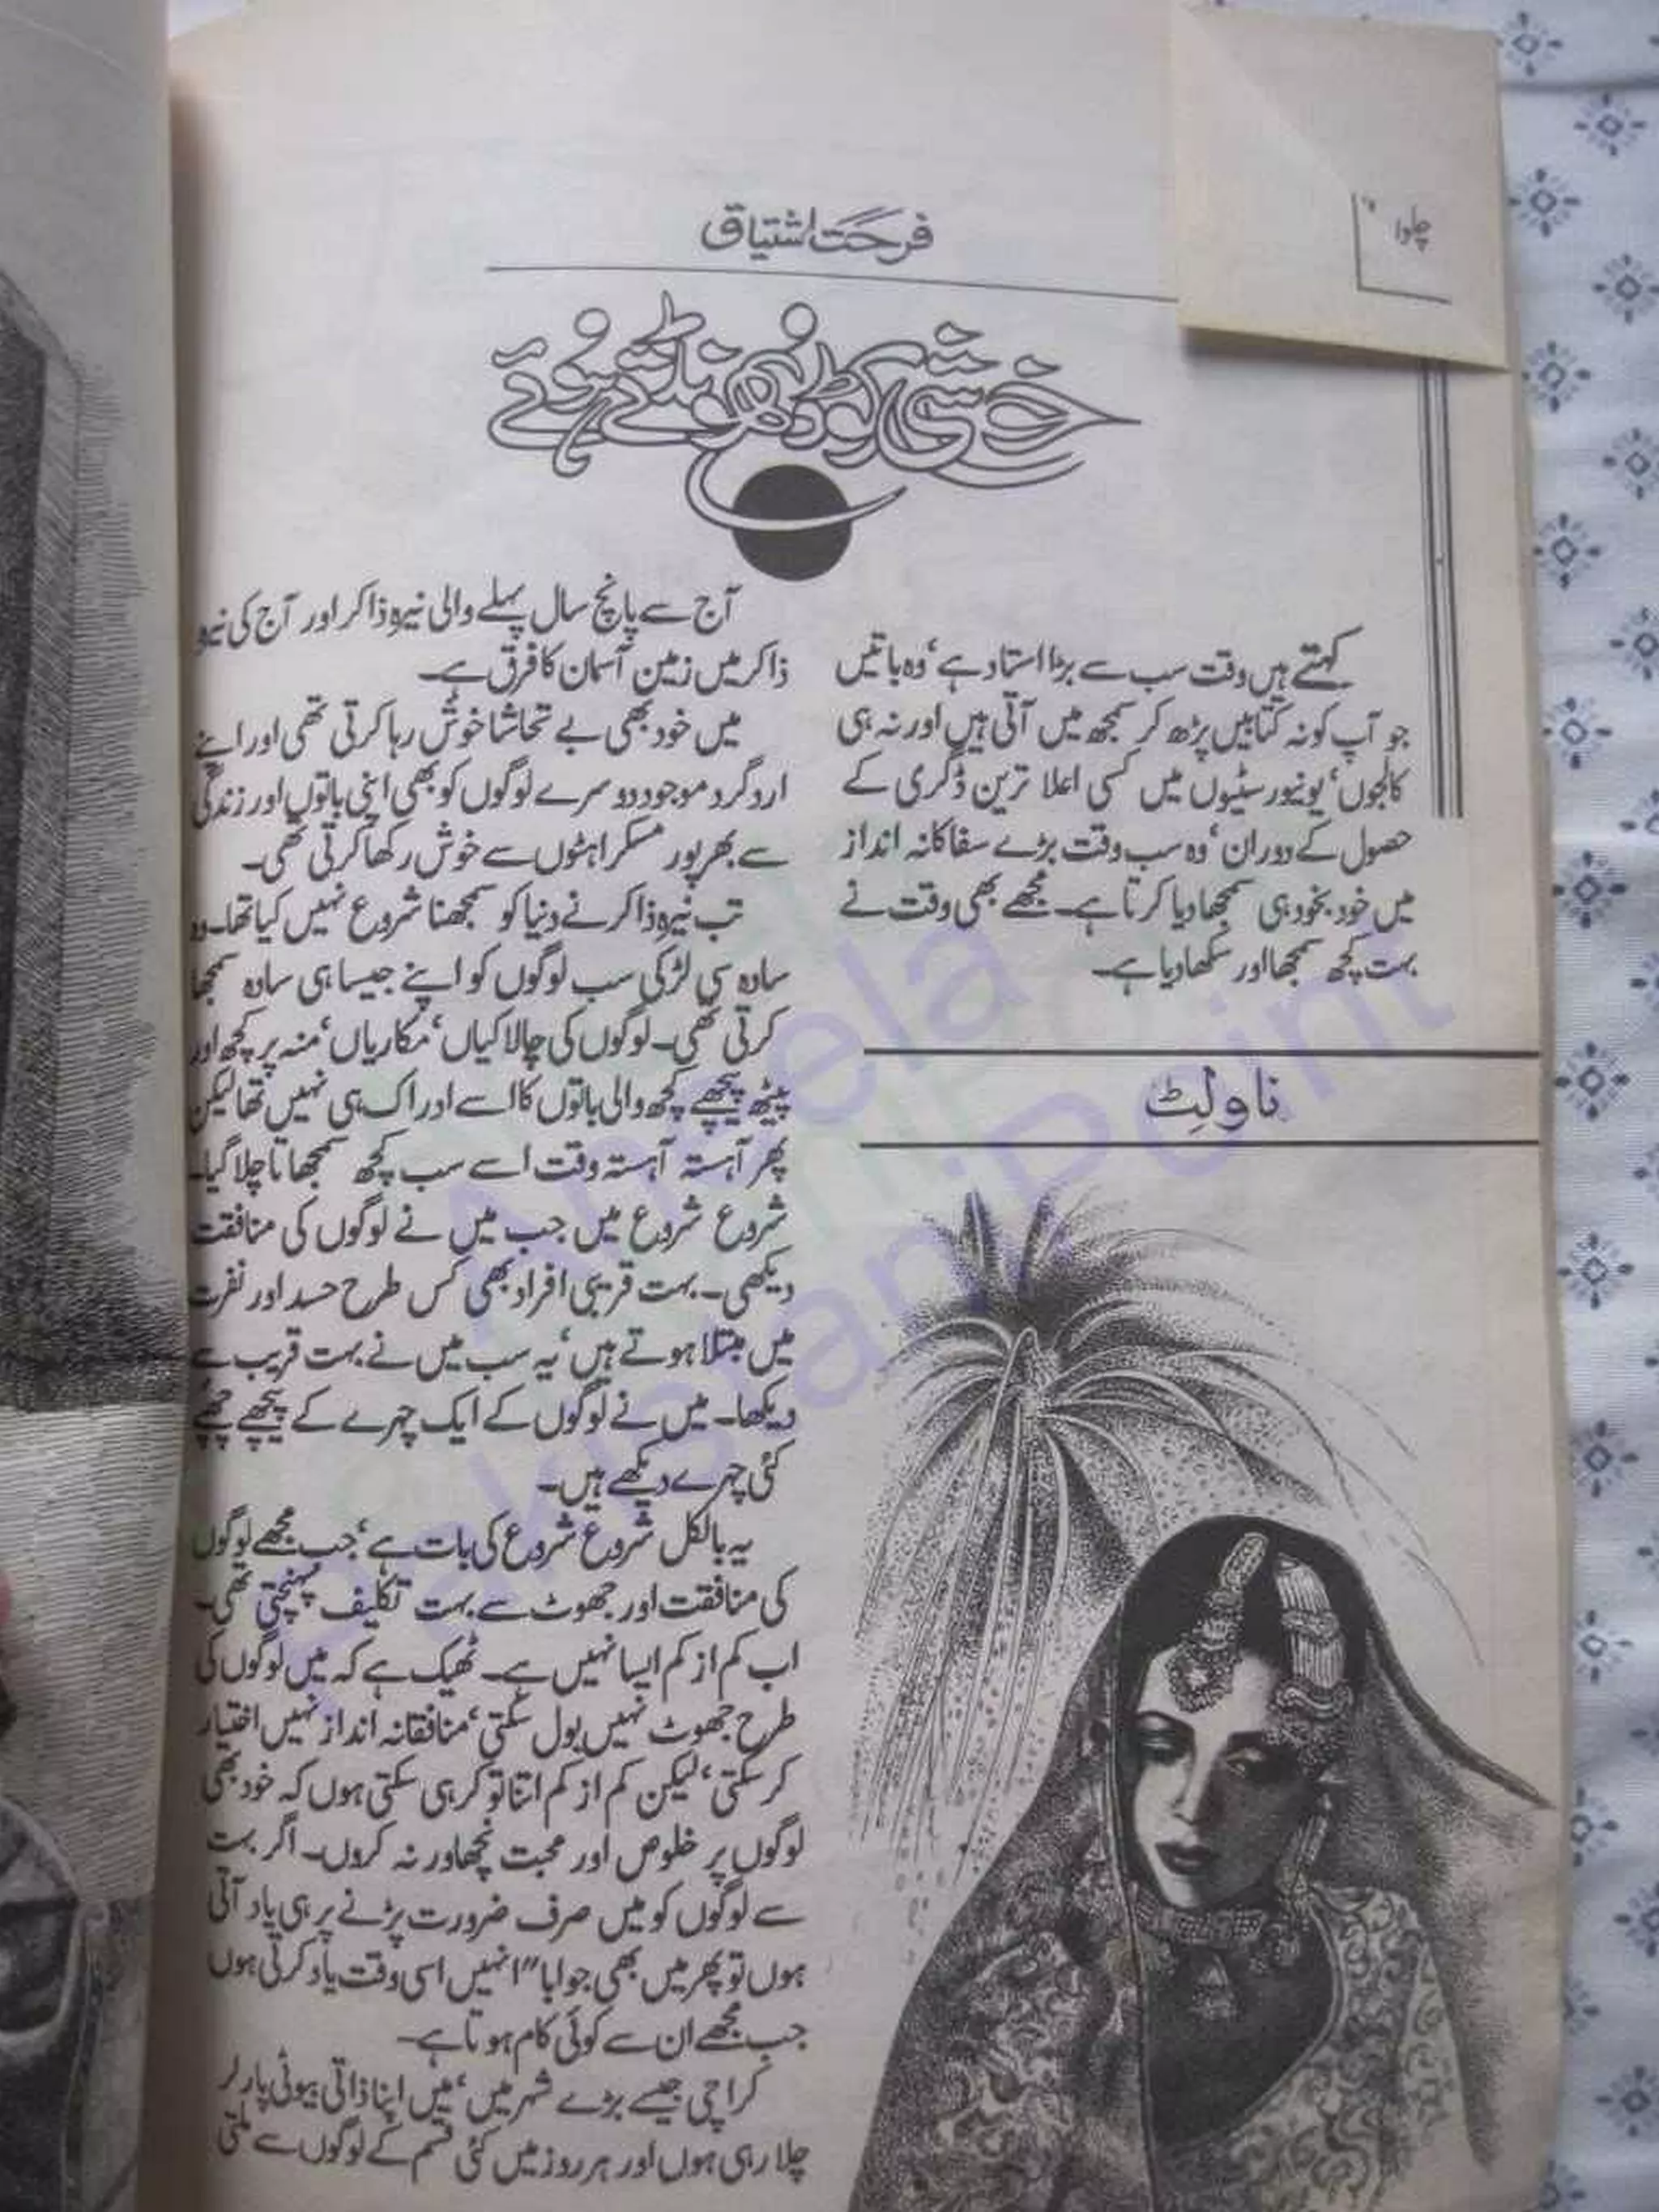 فرحت اشتیاق
خوشی کو ڈھونڈتے ہوئے
کہتے ہیں وقت سب سے بڑا استاد ہے‘ وہ باتیں
جو آپ کو نہ کتابیں پڑھ کر سمجھ میں آتی ہیں اور نہ ہی
کالجوں‘ یونیورسٹیوں میں کسی اعلا ترین ڈگری کے
حصول کے دوران‘ وہ سب وقت بڑے سفاکانہ انداز
میں خود بخود ہی سمجھا دیا کرتا ہے۔ مجھے بھی وقت نے
بہت کچھ سمجھا اور سکھا دیا ہے۔
ناولٹ
آج سے پانچ سال پہلے والی نیرہ ذاکر اور آج کی نیرہ
ذاکر میں زمین آسمان کا فرق ہے۔
میں خود بھی بے تحاشا خوش رہا کرتی تھی اور اپنے
اردگرد موجود دوسرے لوگوں کو بھی اپنی باتوں اور زندگی
سے بھرپور مسکراہٹوں سے خوش رکھا کرتی تھی۔
تب نیرہ ذاکر نے دنیا کو سمجھنا شروع نہیں کیا تھا۔ وہ
سادہ سی لڑکی سب لوگوں کو اپنے جیسا ہی سادہ سمجھا
کرتی تھی۔ لوگوں کی چالاکیاں‘ مکاریاں‘ منہ پر کچھ اور
پیٹھ پیچھے کچھ والی باتوں کا اسے ادراک ہی نہیں تھا لیکن
پھر آہستہ آہستہ وقت اسے سب کچھ سمجھاتا چلا گیا۔
شروع شروع میں جب میں نے لوگوں کی منافقت
دیکھی۔ بہت قریبی افراد بھی کس طرح حسد اور نفرت
میں مبتلا ہوتے ہیں‘ یہ سب میں نے بہت قریب سے
دیکھا۔ میں نے لوگوں کے ایک چہرے کے پیچھے چھپے
کئی چہرے دیکھے ہیں۔
یہ بالکل شروع شروع کی بات ہے‘ جب مجھے لوگوں
کی منافقت اور جھوٹ سے بہت تکلیف پہنچتی تھی۔
اب کم از کم ایسا نہیں ہے۔ ٹھیک ہے کہ میں لوگوں کی
طرح جھوٹ نہیں بول سکتی‘ منافقانہ انداز نہیں اختیار
کر سکتی‘ لیکن کم از کم اتنا تو کر ہی سکتی ہوں کہ خود بھی
لوگوں پر خلوص اور محبت نچھاور نہ کروں۔ اگر بہت
سے لوگوں کو میں صرف ضرورت پڑنے پر ہی یاد آتی
ہوں تو پھر میں بھی جوابا" انہیں اسی وقت یاد کرتی ہوں
جب مجھے ان سے کوئی کام ہوتا ہے۔
کراچی جیسے بڑے شہر میں‘ میں اپنا ذاتی بیوٹی پارلر
چلا رہی ہوں اور ہر روز میں کئی قسم کے لوگوں سے ملتی
Aneela
Pakistani Point